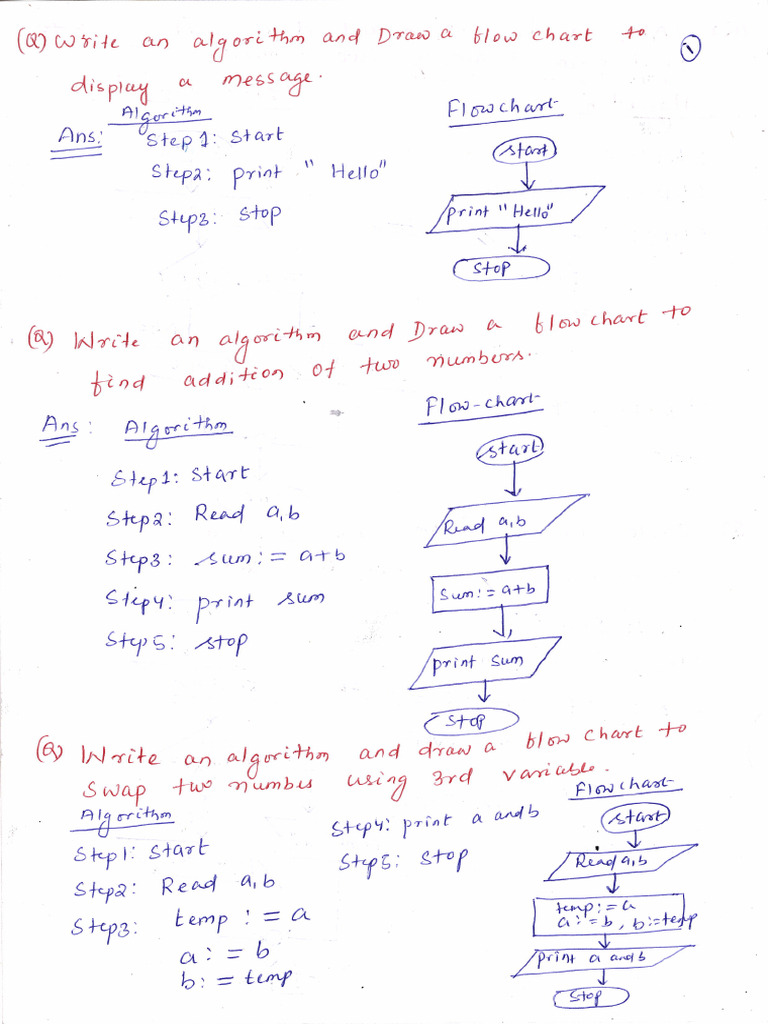 (Q) Write an algorithm and Draw a flow chart to
display a message.
1
Algorithm
Ans:
Step 1: Start
Step2: print "Hello"
Step3: stop
Flowchart
start
print "Hello"
stop
(Q) Write an algorithm and Draw a flow chart to
find addition of two numbers.
Ans: Algorithm
Step1: Start
Step2: Read a,b
Step3: sum:= a+b
Step4: print sum
Step5: stop
Flow-chart
start
Read a,b
Sum:= a+b
print sum
stop
(Q) Write an algorithm and draw a flow chart to
swap two numbes using 3rd variable.
Algorithm
Step1: Start
Step2: Read a,b
Step3: temp := a
a:= b
b:= temp
Step4: print a and b
Step5: stop
Flowchart
start
Read a,b
temp:=a
a:=b, b:=temp
print a and b
stop